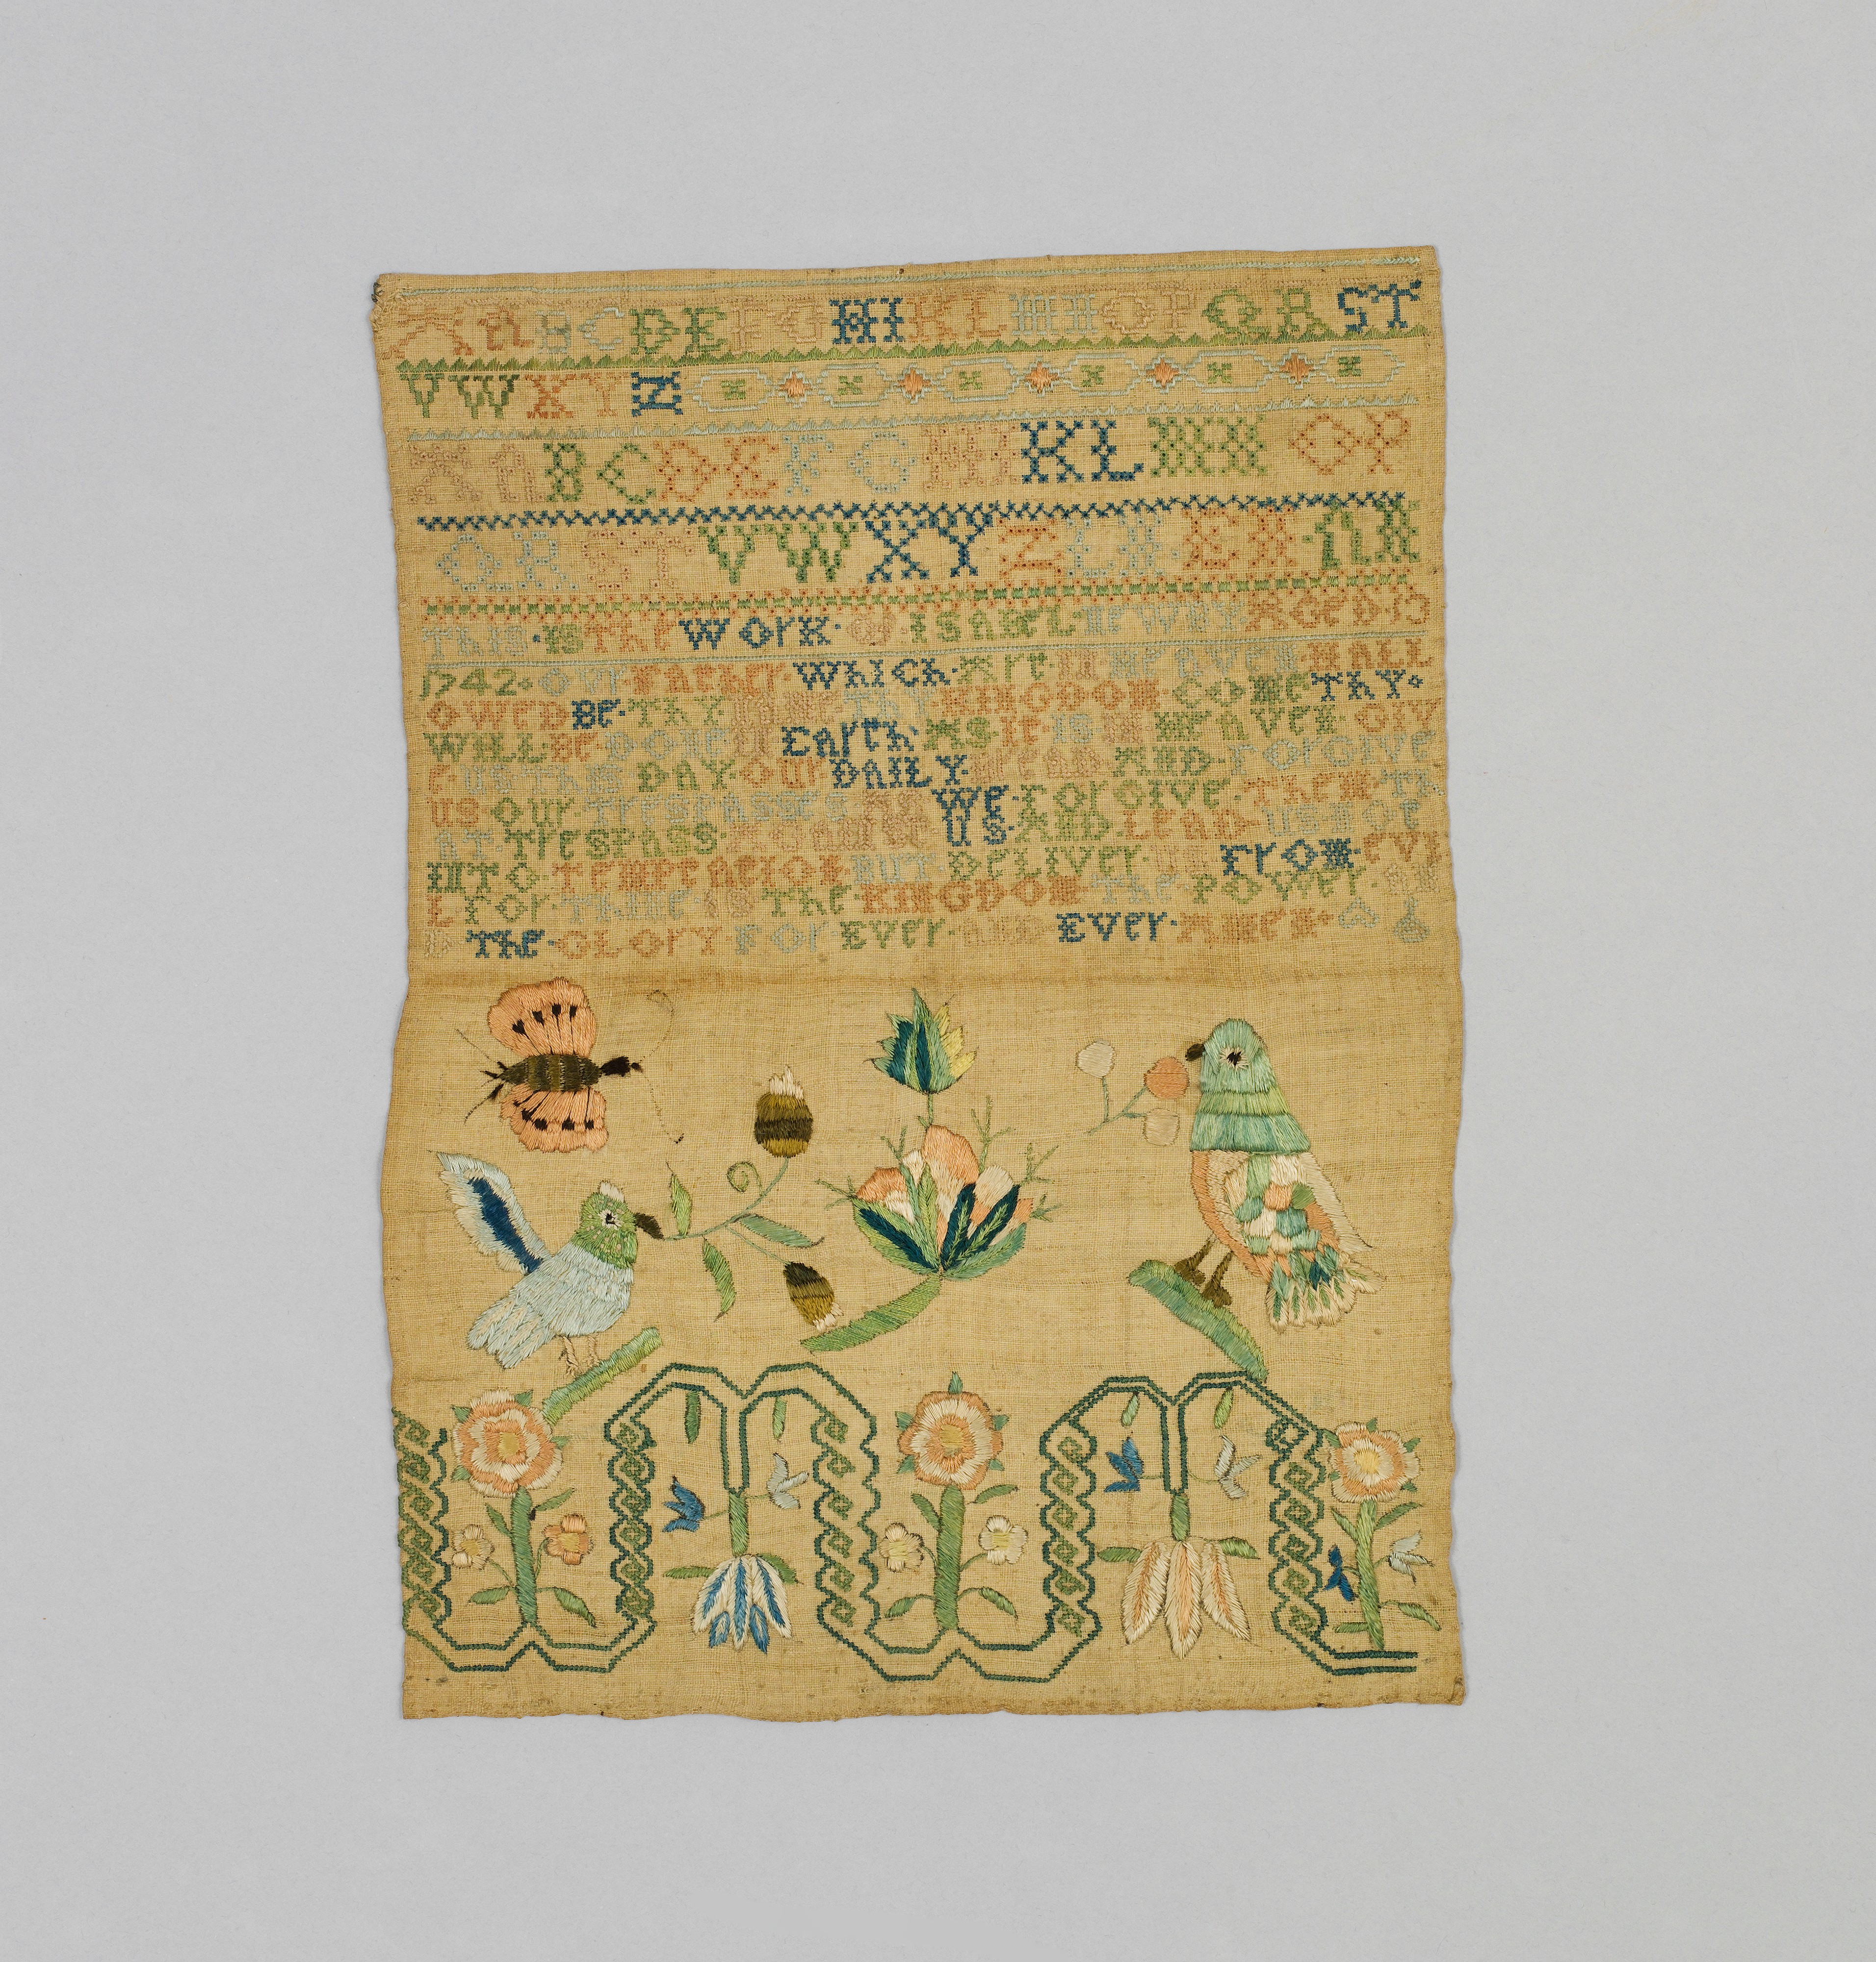 A a B C D E F G H I K L M N O P Q R S T
V W X Y Z
A a B C D E F G H I K L M N O P
Q R S T V W X Y Z
THIS·IS The WOrK·OF·ISABEL· AGED
1742·OUr FATher WhICh·Art·IN HEAVEN HALL
OWED BE·THY NAME THY KINGDOM COME THY·
WILL BE DONE IN EArth·AS·It·IS IN HEAVEN·GIV
E US THIS DAY·OUr DAILY·BrEAD AND·FOrGIVE
US OUr·TrESPASSES AS WE·FOrGIVE·THEM·TH
AT·TrESPASS·AGAINST US·AND·LEAD US NOT
INTO·TEMPTATION BUT DELIVEr US FrOM·EVI
L FOr·THINE·IS The·KINGDOM The·POWEr·AN
D The·GLOrY·FOr EVEr·AND EVEr·AMEN